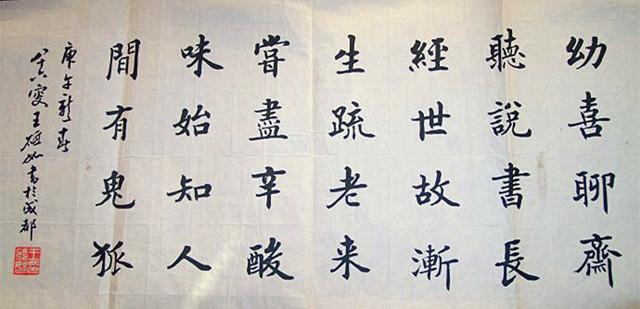 幼喜聊齋
聽說書長
經世故漸
生疏老来
嘗盡辛酸
味始知人
間有鬼狐
庚午新春
叟王如書於成都